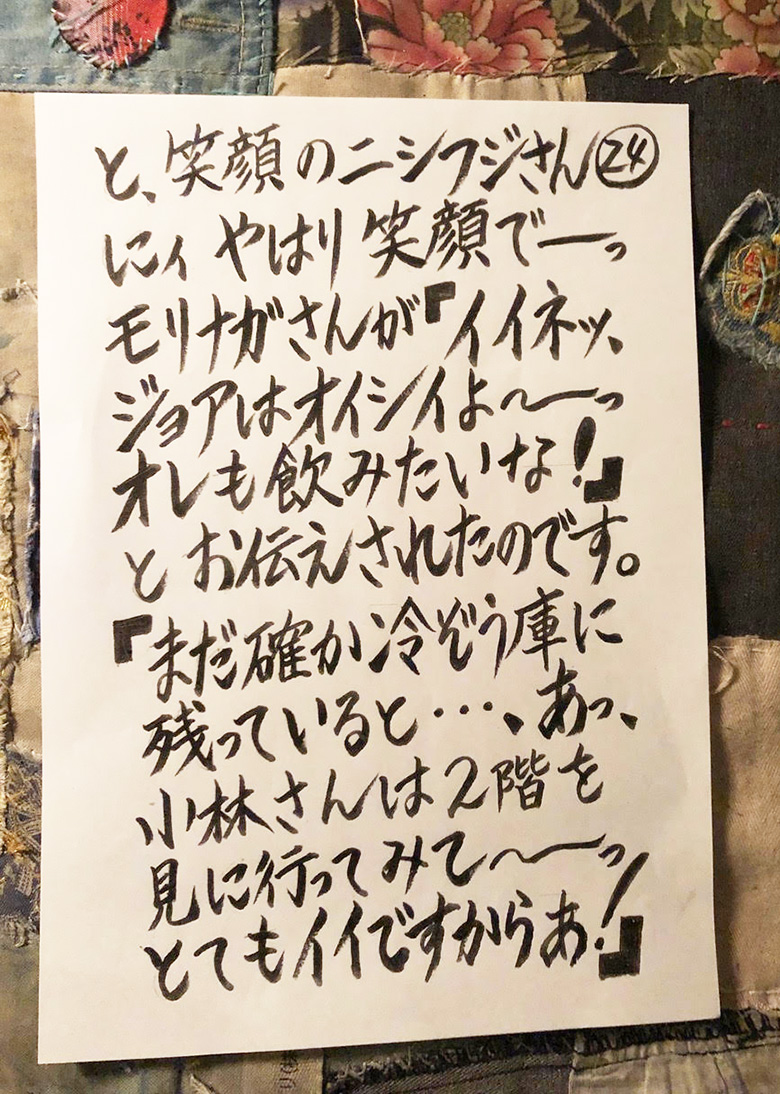 と、笑顔のニシフジさん㉔
にィ やはり 笑顔で──っ
モリナガさんが『イイネッ、
ジョアはオイシイよ〜──っ
オレも飲みたいな!』
と お伝えされたのです。
『まだ確か冷ぞう庫に
残っていると…、あっ、
小林さんは2階を
見に行ってみて〜──っ!
とてもイイですからあ!』